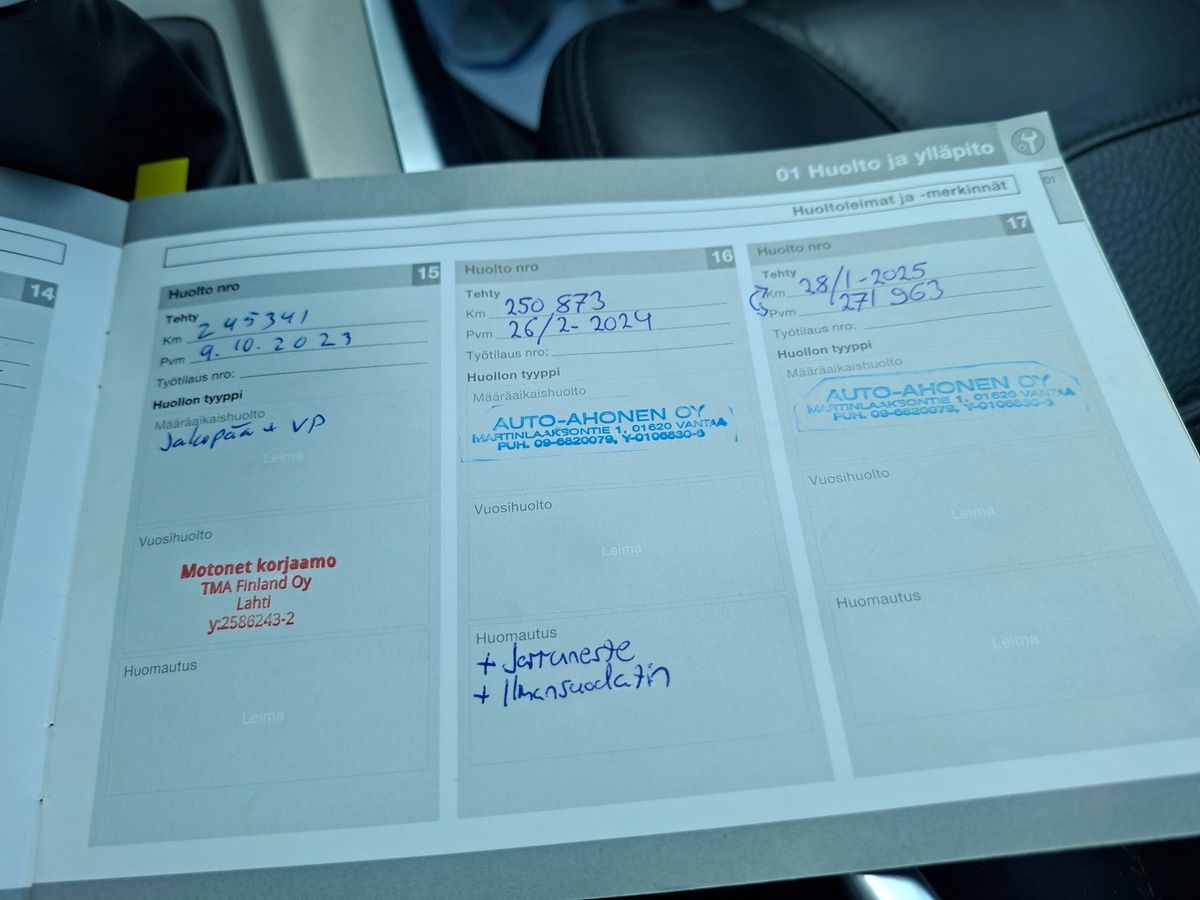 01 Huolto ja ylläpito
01
Huoltoleimat ja -merkinnät
14
Huolto nro 15
Tehty
Km 245341
Pvm 9.10.2023
Työtilaus nro:
Huollon tyyppi
Määräaikaishuolto
Jakopää + VP
Leima
Vuosihuolto
Motonet korjaamo
TMA Finland Oy
Lahti
y:2586243-2
Huomautus
Leima
Huolto nro 16
Tehty
Km 250 873
Pvm 26/2-2024
Työtilaus nro:
Huollon tyyppi
Määräaikaishuolto
AUTO-AHONEN OY
MARTINLAAKSONTIE 1, 01620 VANTAA
PUH. 09-6820079, Y-0106830-3
Vuosihuolto
Leima
Huomautus
+ Jarruneste
+ Ilmansuodatin
Huolto nro 17
Tehty
Km 28/1-2025
Pvm 271 963
Työtilaus nro:
Huollon tyyppi
Määräaikaishuolto
AUTO-AHONEN OY
MARTINLAAKSONTIE 1, 01620 VANTAA
PUH. 09-6820079, Y-0106830-3
Vuosihuolto
Leima
Huomautus
Leima